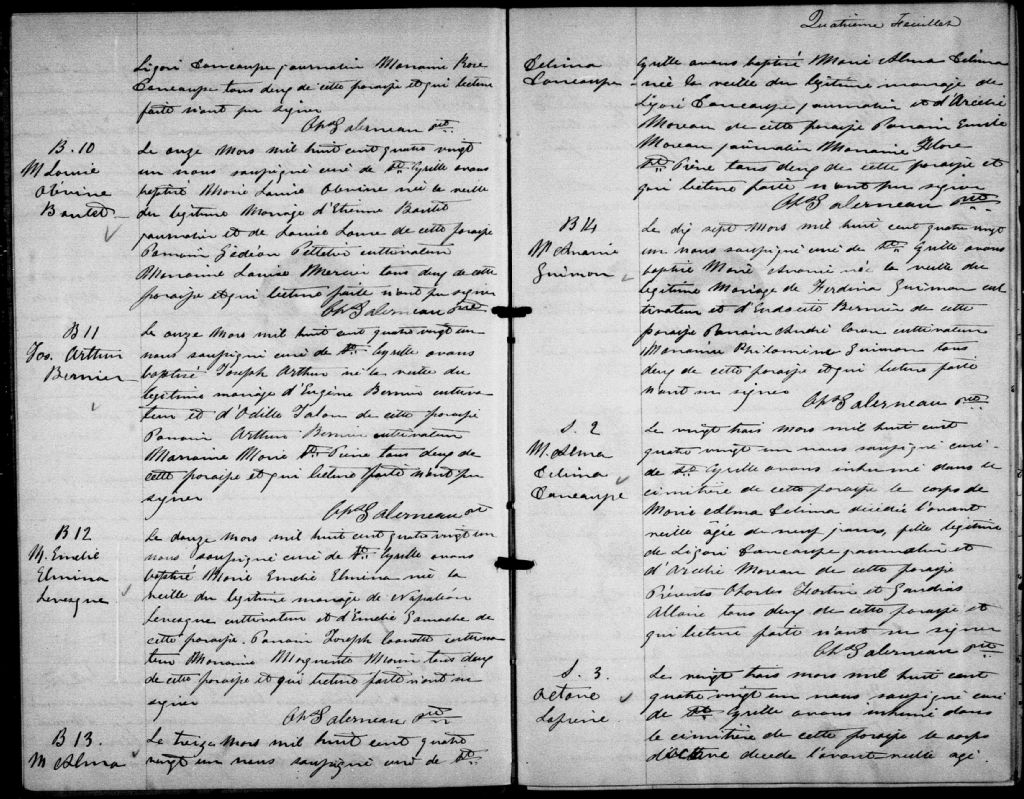 Ligori Cancaupe journalier Marraine Rose
Cancaupe tous deux de cette paroisse et qui lecture
faite n'ont pu signer
Chs Galerneau ptre
B. 10
M Louise
Obévine
Boutet
Le onze Mars mil huit cent quatre vingt
un nous soussigné curé de St. Cyrille avons
baptisé Marie Louise née la veille
du légitime Mariage d'Etienne Boutet
journalier et de Louise de cette paroisse
Parrain Gédéon Pelletier cultivateur
Marraine Louise Mercier tous deux de cette
paroisse et qui lecture faite n'ont pu signer
Chs Galerneau ptre
B 11
Jos. Arthur
Bernier
Le onze Mars mil huit cent quatre vingt un
nous soussigné curé de St. Cyrille avons
baptisé Joseph Arthur né la veille du
légitime mariage d'Eugène Bernier cultiva-
teur et d'Odille Talon de cette paroisse
Parrain Arthur Bernier cultivateur
Marraine Marie St. Pierre tous deux de
cette paroisse et qui lecture faite n'ont pu
signer
Chs Galerneau ptre
B 12
M. Emelie
Elmina
Levesque
Le douze Mars mil huit cent quatre vingt un
nous soussigné curé de St. Cyrille avons
baptisé Marie Emelie Elmina née la
veille du légitime mariage de Napoléon
Levesque cultivateur et d'Emelie Gamache de
cette paroisse. Parrain Joseph cultiva-
teur Marraine Marguerite Morin tous deux
de cette paroisse et qui lecture faite n'ont su
signer
Chs Galerneau ptre
B 13.
M Alma
Le treize Mars mil huit cent quatre
vingt un nous soussigné curé de St.
Quatrième Feuillet
Célina
Cancaupe
Cyrille avons baptisé Marie Alma Célina
née la veille du légitime mariage de
Ligori Cancaupe journalier et d'Arcélie
Moreau de cette paroisse Parrain Emile
Moreau journalier Marraine Flore
St. Pierre tous deux de cette paroisse et
qui lecture faite n'ont pu signer
Chs Galerneau ptre
B 14
M Amarie
Guimon
Le dix sept Mars mil huit cent quatre vingt
un nous soussigné curé de St. Cyrille avons
baptisé Marie née la veille du
légitime Mariage de Ferdina Guimon cul
tivateur et d'Eudoxie Bernier de cette
paroisse Parrain André Caron cultivateur
Marraine Philomène Guimon tous
deux de cette paroisse et qui lecture faite
n'ont su signer
Chs Galerneau ptre
S. 2
M. Alma
Célina
Cancaupe
Le vingt trois Mars mil huit cent
quatre vingt un nous soussigné curé
de St. Cyrille avons inhumé dans le
cimitière de cette paroisse le corps de
Marie Alma Célina décédée l'avant
veille âgée de neuf jours, fille légitime
de Ligori Cancaupe journalier et
d'Arcélie Moreau de cette paroisse
Présents Charles Fortin et Gaudias
Allaire tous deux de cette paroisse et
qui lecture faite n'ont su signer
Chs Galerneau ptre
S. 3.
Octave
Le vingt trois Mars mil huit cent
quatre vingt un nous soussigné curé
de St. Cyrille avons inhumé dans
le cimitière de cette paroisse le corps
d'Octave décédé l'avant veille agé